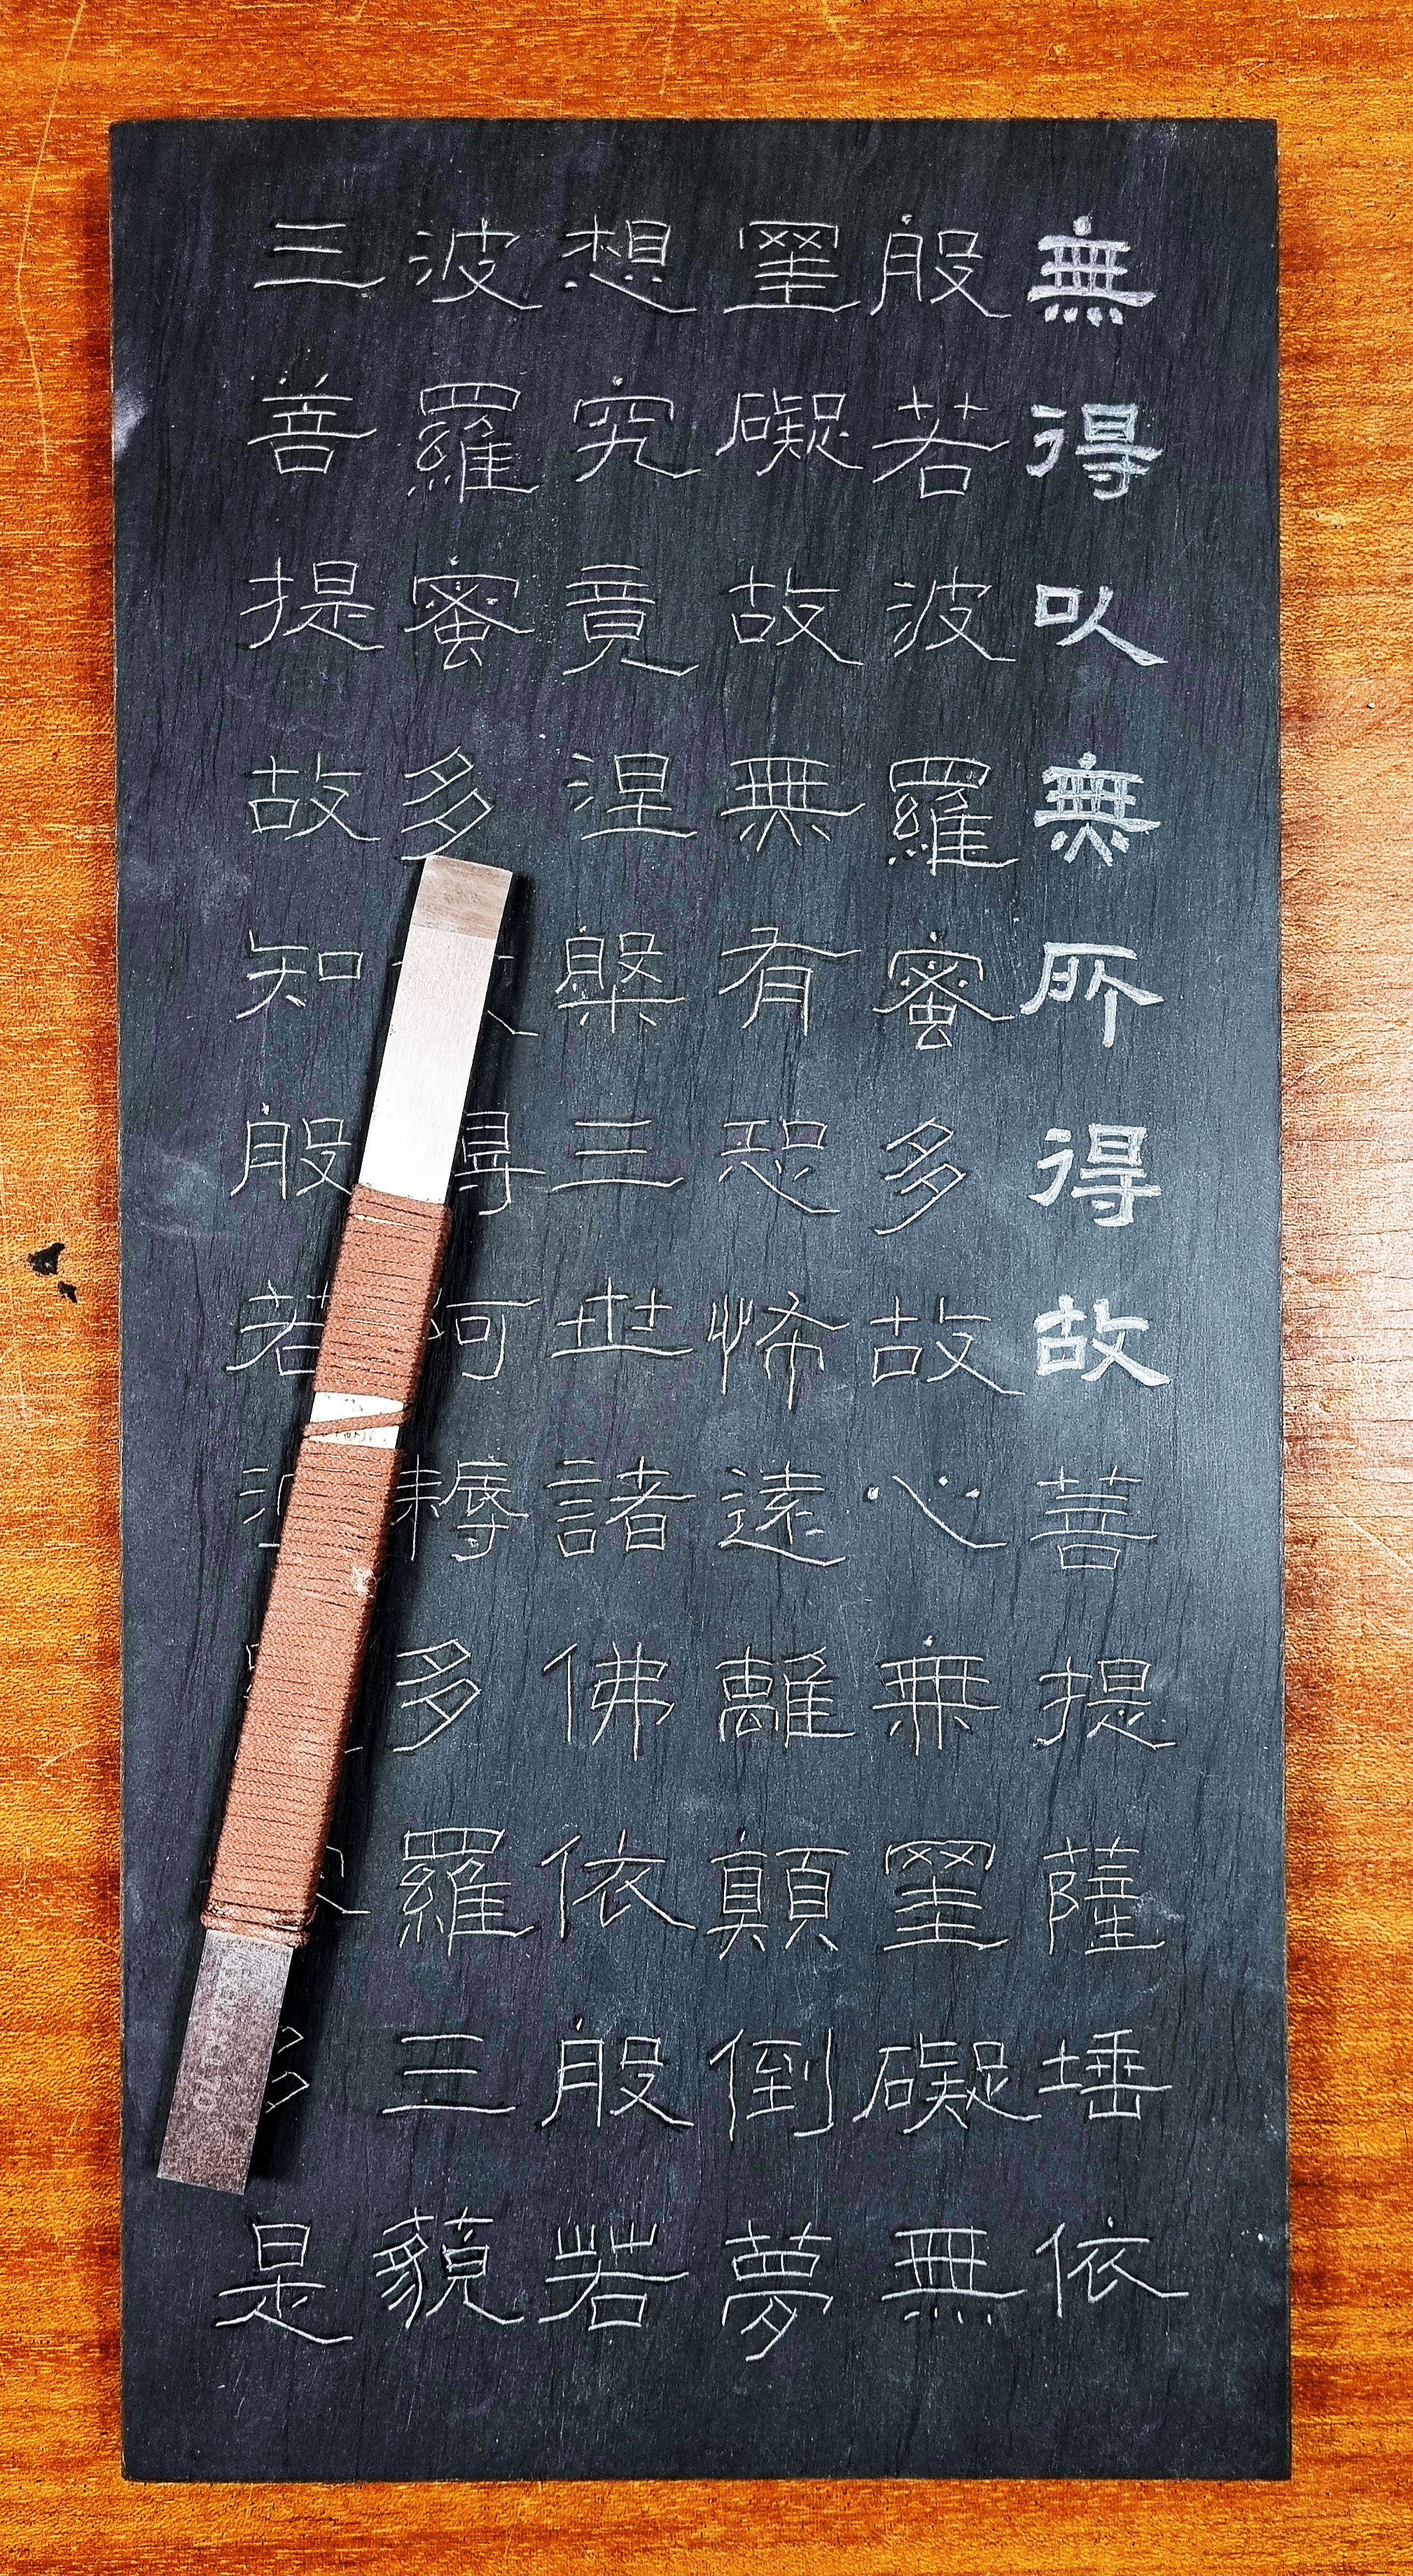 無得以無所得故菩提薩埵依
般若波羅蜜多故心無罣礙無
罣礙故無有恐怖遠離顛倒夢
想究竟涅槃三世諸佛依般若
波羅蜜多得阿耨多羅三藐
三菩提故知般若多是